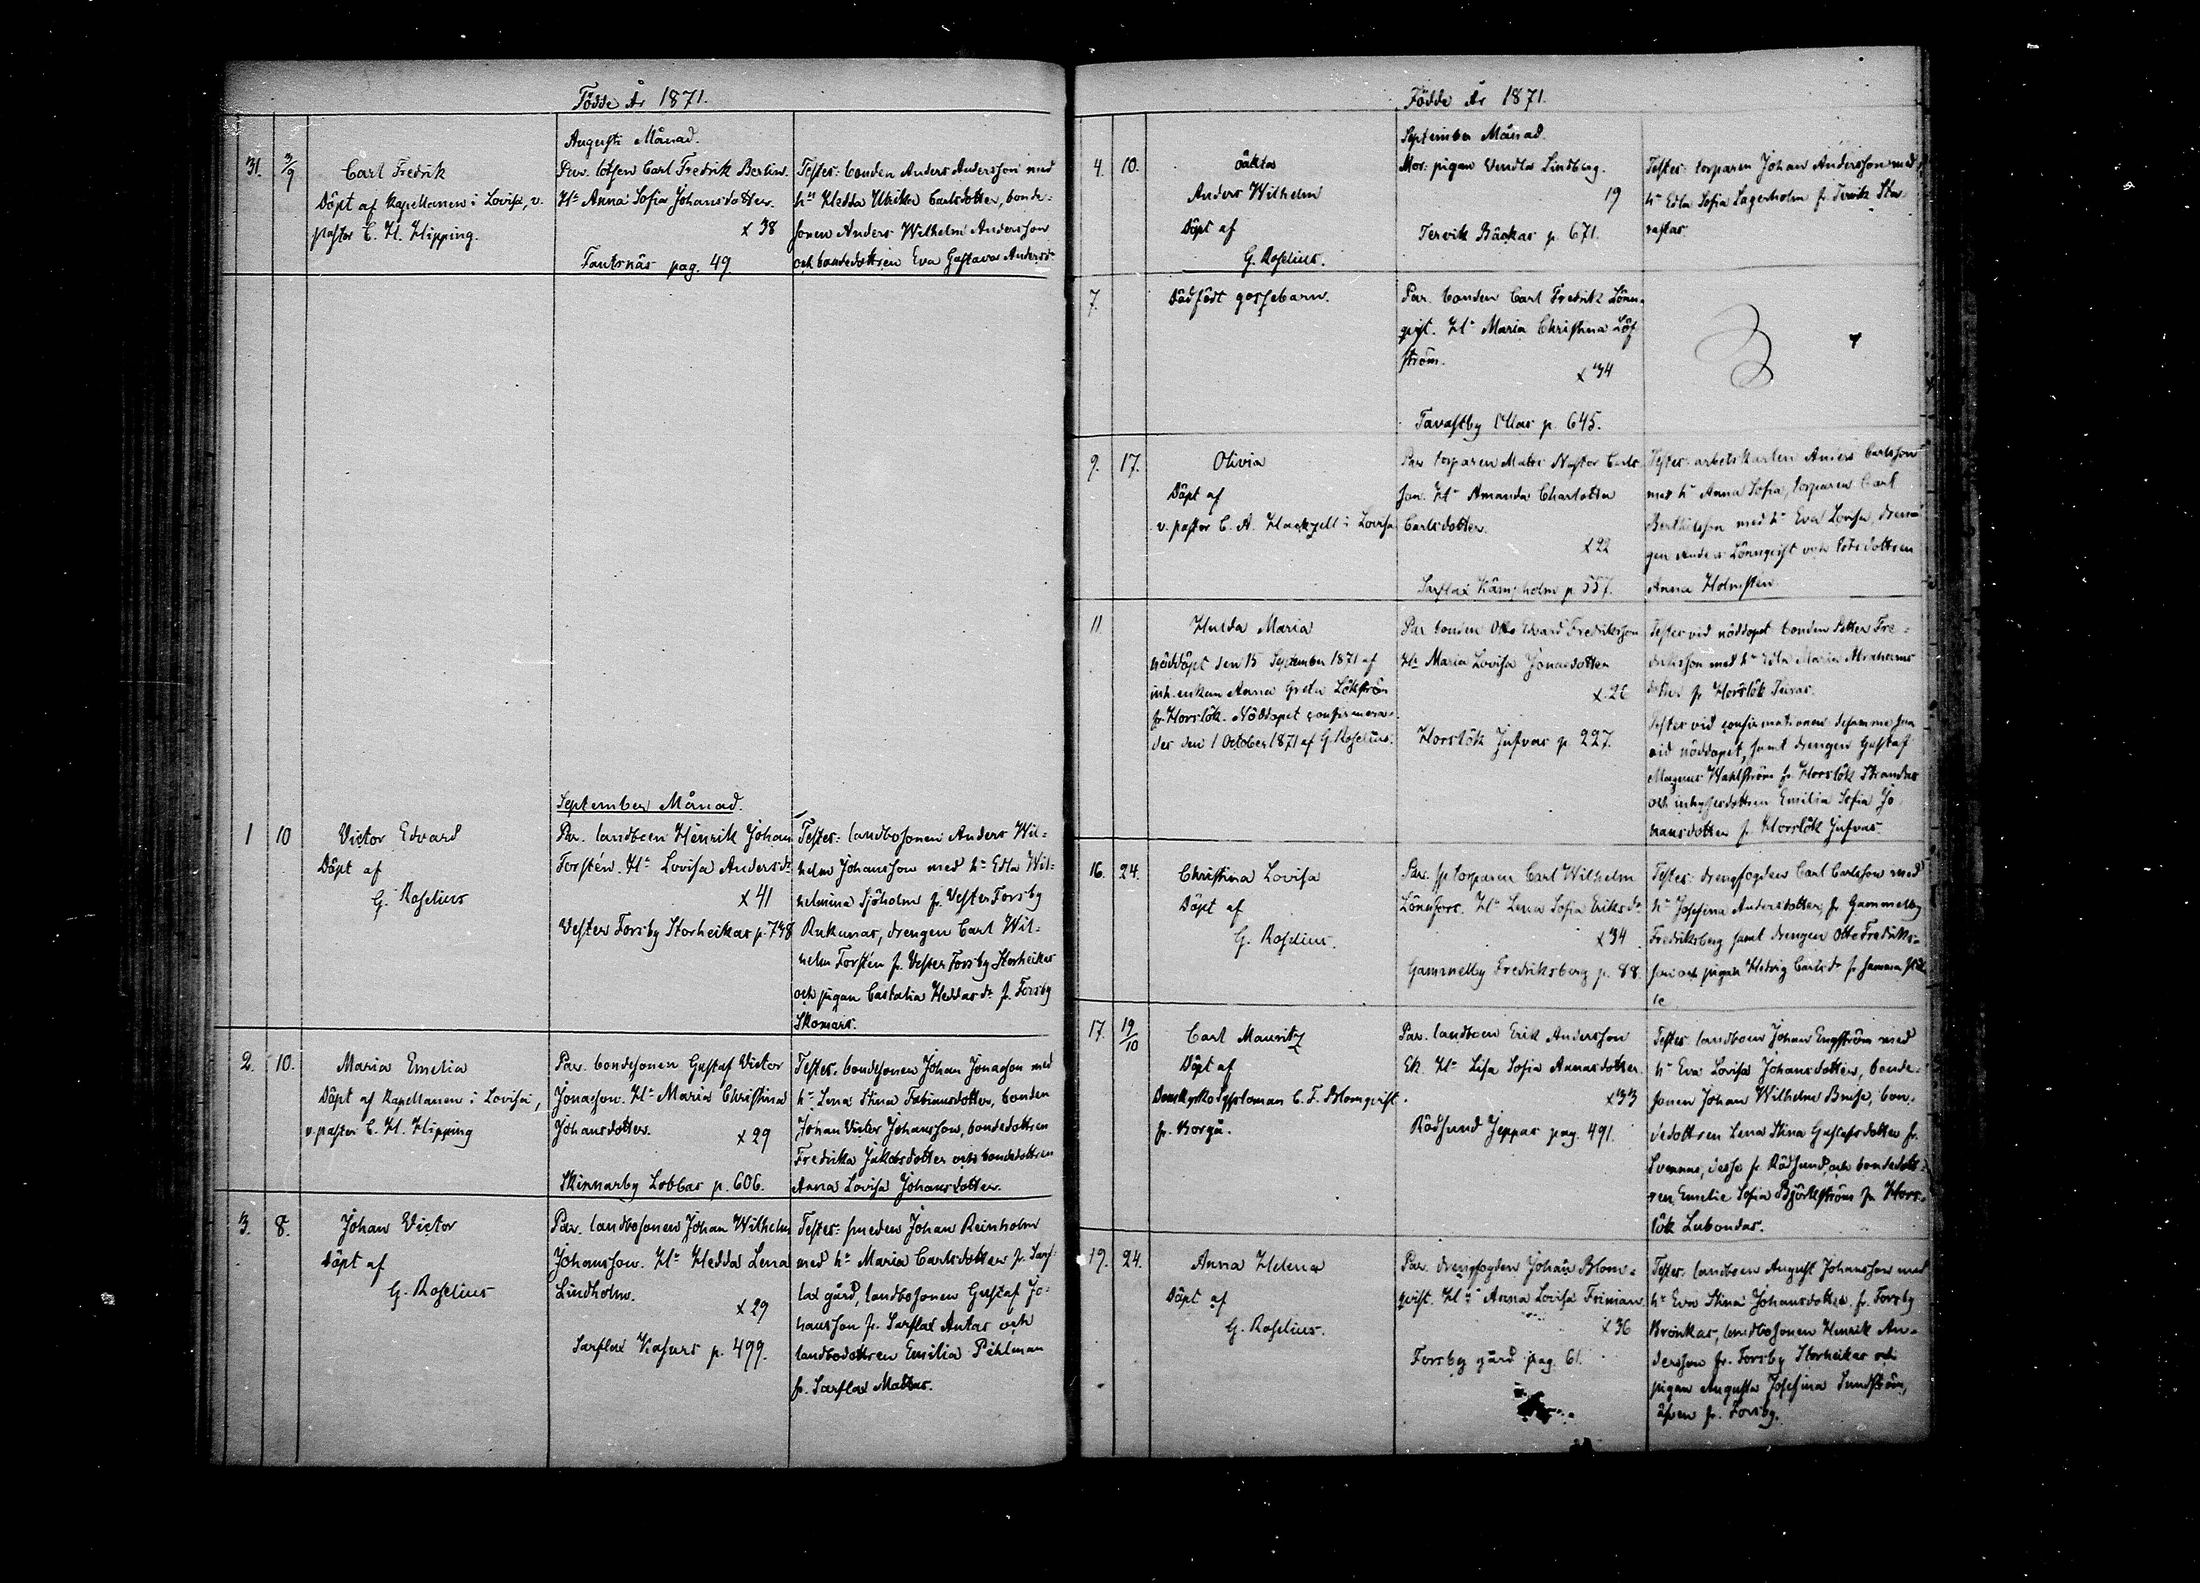 Födde År 1871.
Augusti Månad.
31. 3/9 Carl Fredrik
Döpt af Kapellanen i Lovisa, v.
pastor C. H. Hipping.
Par. lotsen Carl Fredrik Berlin.
Hu Anna Sofia Johansdotter.
x 38
pag. 49.
Testes: bonden Anders Andersson med
hu Hedda Ulrika Carlsdotter, bonde-
sonen Anders Wilhelm Andersson
och bondedottren Eva Gustava Andersdr
September Månad.
1 10 Victor Edvard
Döpt af
G. Roselius
Par. landboen Henrik Johan
Forstén. Hu Lovisa Andersdr
x 41
Vester Forsby Storheikas p. 748
Testes: landbosonen Anders Wil-
helm Johansson med hu Edla Wil-
helmina Sjöholm fr. Vester Forsby
Rukunas, drengen Carl Wil-
helm Forstén fr. Vester Forsby Storheikas
och pigan Castalia Heddasdr fr. Forsby
Skomars.
2. 10. Maria Emelia
Döpt af Kapellanen i Lovisa,
v. pastor C. H. Hipping
Par. bondesonen Gustaf Victor
Jonasson. Hu Maria Christina
Johansdotter.
x 29
Skinnarby Lobbas p. 606.
Testes: bondesonen Johan Jonasson med
hu Lena Stina Fabiansdotter, bonden
Johan Victor Johansson, bondedottren
Fredrika Jakobsdotter och bondedottren
Anna Lovisa Johansdotter.
3. 8. Johan Victor
Döpt af
G. Roselius
Par. landbosonen Johan Wilhelm
Johansson. Hu Hedda Lena
Lindholm.
x 29
Sarflax p. 499.
Testes: smeden Johan Reinholm
med hu Maria Carlsdotter fr. Sarf-
lax gård, landbosonen Gustaf Jo-
hansson fr. Sarflax Antas och
landbodottren Emilia Pihlman
fr. Sarflax Mattas.
Födde År 1871.
September Månad.
4. 10. oäkta
Anders Wilhelm
Döpt af
G. Roselius.
Mor: pigan Vendla Lindberg.
19
Tervik Bäckas p. 671.
Testes: torparen Johan Andersson med
hu Edla Sofia Lagerholm fr. Tervik
7. Dödfödt gossebarn.
Par. bonden Carl Fredrik Lönn-
qvist. Hu Maria Christina Löf
ström.
x 34
Tavastby Ollas p. 645.
9. 17. Olivia
Döpt af
v. pastor C. A. Hackzell i Lovisa
Par torparen Mats Nestor Carls
son. Hu Amanda Charlotta
Carlsdotter.
x 22
Sarflax Kämpholm p. 557.
Testes: arbetskarlen Anders Carlsson
med hu Anna Sofia, torparen Carl
Berthilsson med hu Eva Lovisa, dren-
gen Anders Lönnqvist och lotsdottren
Anna Holmstén
11 Hulda Maria
nöddöpt den 15 September 1871 af
inh. enkan Anna Greta Lökström
fr. Horslök. Nöddopet confirmera-
des den 1 October 1871 af G. Roselius.
Par bonden Otto Edvard Fredriksson
Hu Maria Lovisa Jonasdotter
x 26
Horslök Jufvas p. 227.
Testes vid nöddopet bonden Petter Fre-
driksson med hu Edla Maria Abrahams
dotter fr. Horslök
Testes vid confirmationen desamma som
vid nöddopet, samt drengen Gustaf
Magnus Wahlström fr. Horslök Strandas
och inhysesdottren Emilia Sofia Jo
hansdotter fr. Horslök Jufvas.
16. 24. Christina Lovisa
Döpt af
G. Roselius.
Par. sp. torparen Carl Wilhelm
Lönnfors. Hu Lena Sofia Eriksdr
x 34
Gammelby Fredriksberg p. 88.
Testes: drengfogden Carl Carlsson med
hu Josefina Andersdotter, fr. Gammelby
Fredriksberg samt drengen Otto Fredriks-
son och pigan Hedvig Carlsdr fr. samma ställ
le
17. 19/10 Carl Mauritz
Döpt af
C. F. Blomqvist
fr. Borgå.
Par. landboen Erik Andersson
Ek. Hu Lisa Sofia Annasdotter
x 33
Rödsund Jeppas pag. 491.
Testes: landboen Johan Engström med
hu Eva Lovisa Johansdotter, bonde-
sonen Johan Wilhelm Bruse, bon-
dedottren Lena Stina Gustafsdotter fr.
Svennas, desse fr. Rödsund och bondedott-
ren Emelie Sofia Björkström fr. Hors-
lök Lubondas.
19. 24. Anna Helena
Döpt af
G. Roselius.
Par. drengfogden Johan Blom-
qvist. Hu Anna Lovisa Friman
x 36
Forsby gård pag. 61.
Testes: landboen August Johansson med
hu Eva Stina Johansdotter fr. Forsby
Brinkas, landbosonen Henrik An-
dersson fr. Forsby Storheikas och
pigan Augusta Josefina Sundström,
äfven fr. Forsby.